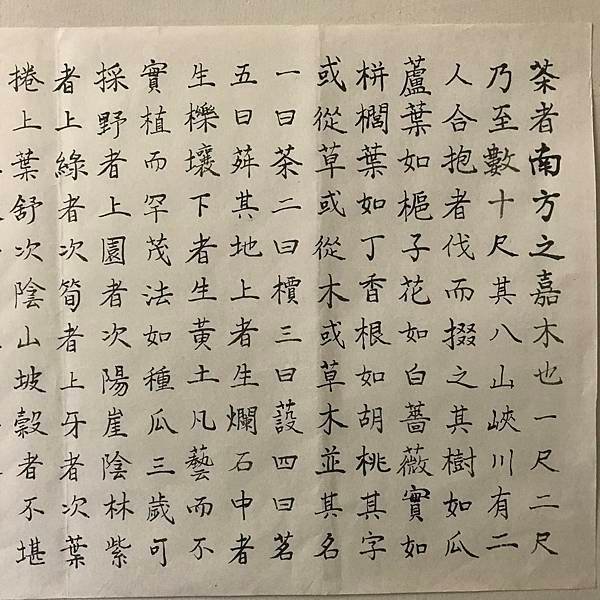 茶者南方之嘉木也一尺二尺
乃至數十尺其八山峽川有二
人合抱者伐而掇之其樹如瓜
蘆葉如梔子花如白薔薇實如
栟櫚葉如丁香根如胡桃其字
或從草或從木或草木並其名
一曰茶二曰檟三曰蔎四曰茗
五曰荈其地上者生爛石中者
生櫟壤下者生黃土凡藝而不
實植而罕茂法如種瓜三歲可
採野者上園者次陽崖陰林紫
者上綠者次筍者上牙者次葉
捲上葉舒次陰山坡穀者不堪